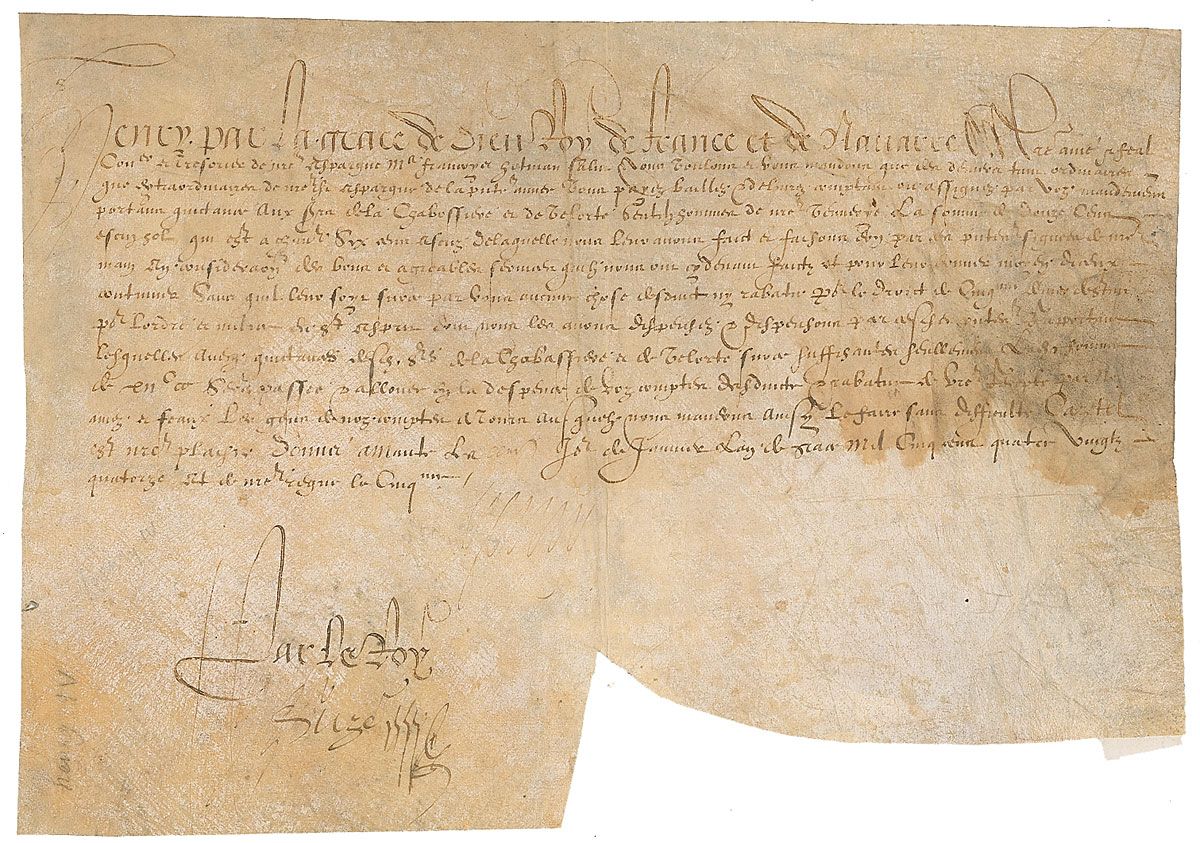 Henry par la grace de Dieu Roy de France et de Navarre A nre ame et feal
Coner et tresorier de nre espargne Me Francoys hotman salut Nous voulons et vous mandons que des deniers tant ordinaires
que extraordinaires de nredicte espargne de la pnte annee vous payez baillez et delivrez comptant ou assignez par voz mandemens
portans quictance aux srs de la Chabossiere et de Gentilzhommes de nre la somme de douze cens
escuz sol qui est a chacun six cens escuz de laquelle nous leur avons faict et faisons don par ces pntes signees de nre
main en consideraon des bons et agreables services quilz nous ont cy devant faictz et pour leur donner moyen de
continuer Sans quil leur soyt sur ce par vous aucune chose desduict ny rabatu por le droict de Cinqme denier destiné
por lordre et milice du st esprit dont nous les avons dispensez et dispensons par cesdictes pntes Rapportant
lesquelles avec quictances desdz. srs de la Chabossiere et de sur ce suffisantes seullement Ladicte somme
de xiic escus sera passee et allouee en la despence de voz comptes desduicte et rabatue de vre recepte par noz
amez et feaux Les gens de noz comptes a Tours Ausquelz nous mandons ainsy le faire sans difficulté Car tel
est nre plaisir Donné a Mante Le Jor de Janvier Lan de grace mil Cinq cens quatre vingtz
quatorze Et de nre regne le Cinqme
Henry
Par le Roy
Ruzé
Henry IV